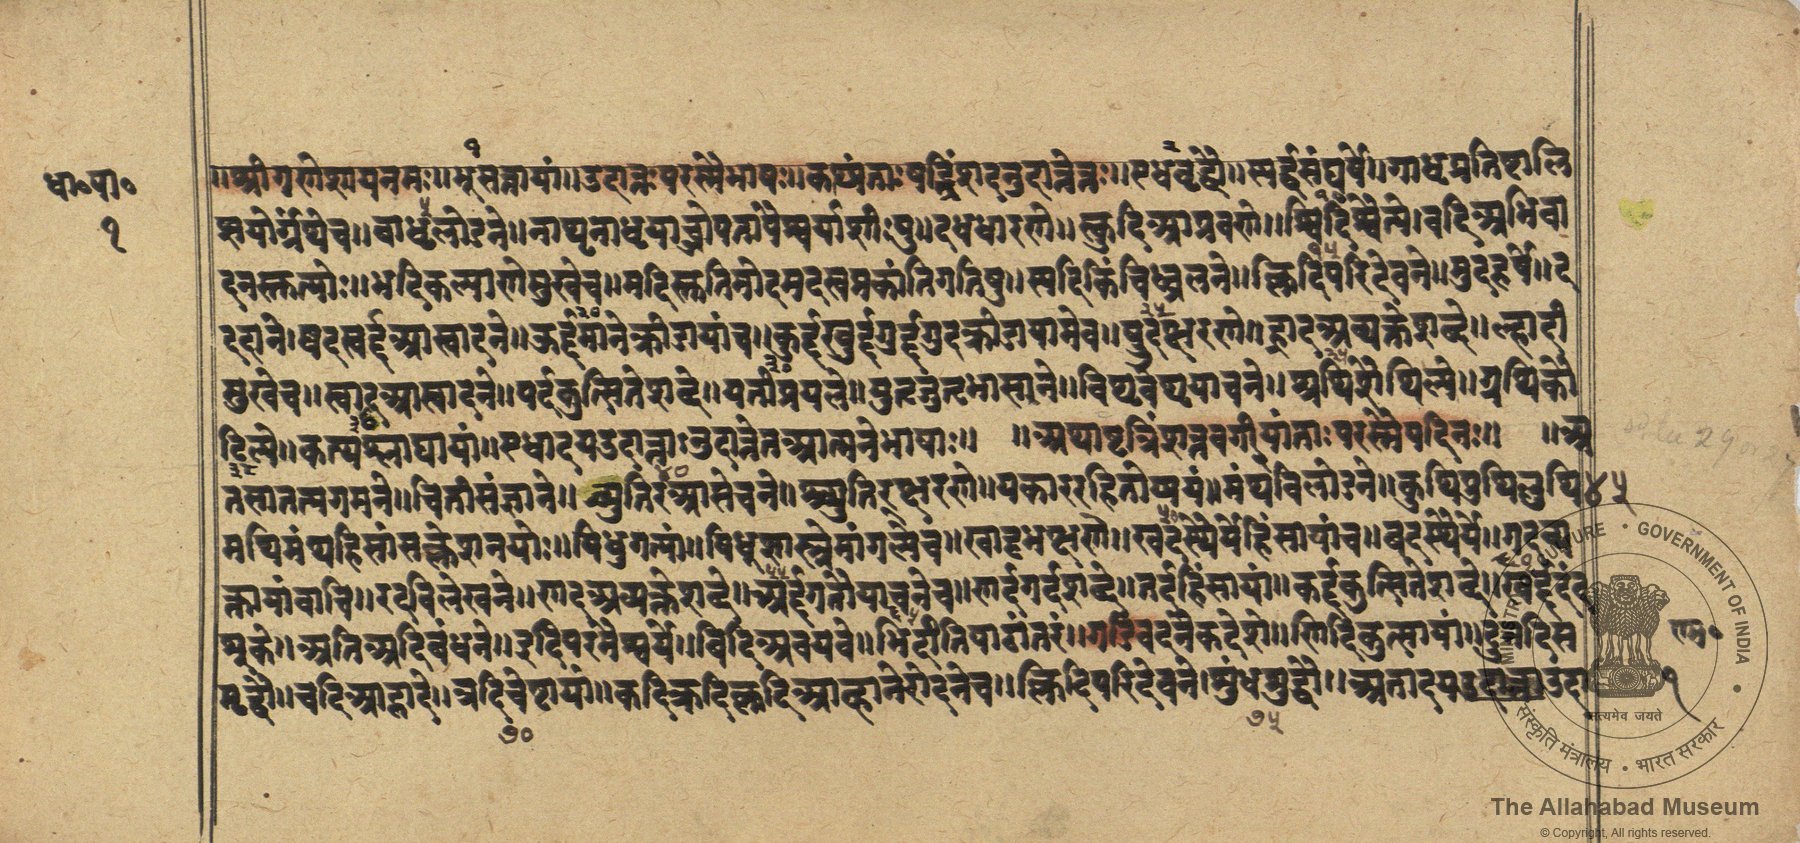 धा०पा०
१
१
॥श्रीगणेशायनमः॥भूसत्तायां॥उदात्तःपरस्मैभाषः॥कत्थ्यंताःषट्त्रिंशदनुदात्तेतः॥एधवृद्धौ॥स्पर्द्धसंघर्षे॥गाधृप्रतिष्टालि
प्सयोर्ग्रंथेच॥बाधृलोडने॥नाथृनाधृयाच्ञोपतापैश्वर्याशीःषु॥दधधारणे॥स्कुदिआप्रवणे॥श्विदिश्वैत्ये॥वदिअभिवा
दनस्तुत्योः॥भदिकल्याणेसुखेच॥मदिस्तुतिमोदमदस्वप्नकांतिगतिषु॥स्पदिकिंचिच्चलने॥क्लिदिपरिदेवने॥मुदहर्षे॥द
ददाने॥ष्वदस्वर्दआस्वादने॥उर्दमानेक्रीडायांच॥कुर्दखुर्दगुर्दगुदक्रीडायामेव॥षूदक्षरणे॥ह्रादअव्यक्तेशब्दे॥ल्हादी
सुखेच॥स्वादआस्वादने॥पर्दकुत्सितेशब्दे॥यतीप्रयत्ने॥युतृजुतृभासने॥विथृवेथृयाचने॥श्रथिशैथिल्ये॥ग्रथिकौ
टिल्ये॥कत्थश्लाघायां॥एधादयउदात्ताअनुदात्तेतआत्मनेभाषाः॥ ॥अथाष्टत्रिंशत्तवर्गीयांताःपरस्मैपदिनः॥ ॥अ
तसातत्यगमने॥चितीसंज्ञाने॥च्युतिर्आसेचने॥श्च्युतिर्क्षरणे॥यकाररहितोप्ययं॥मंथविलोडने॥कुथिपुथिलुथि
४५
मथिमंथहिंसासंक्लेशनयोः॥षिधुगत्यां॥षिधूशास्त्रेमांगल्येच॥खादृभक्षणे॥खदस्थैर्येहिंसायांच॥बदस्थैर्ये॥गदव्य
क्तायांवाचि॥रदविलेखने॥णदअव्यक्तेशब्दे॥अर्दगतौयाचनेच॥नर्दगर्दशब्दे॥तर्दहिंसायां॥कर्दकुत्सितेशब्दे॥खर्ददंद
शूके॥अतिअदिबंधने॥इदिपरमैश्वर्ये॥बिदिअवयवे॥भिदीतिपाठांतरं॥गडिवदनैकदेशे॥णिदिकुत्सायां॥टुनदिस
राम०
मृद्धौ॥चदिआह्लादे॥त्रदिचेष्टायां॥कदिक्रदिक्लदिआव्हानेरोदनेच॥क्लिदिपरिदेवने॥शुंधशुद्धौ॥अतादयउदात्ताउदा
१
७०
७५
MINISTRY OF CULTURE • GOVERNMENT OF INDIA
सत्यमेव जयते
संस्कृति मंत्रालय • भारत सरकार
The Allahabad Museum
© Copyright, All rights reserved.